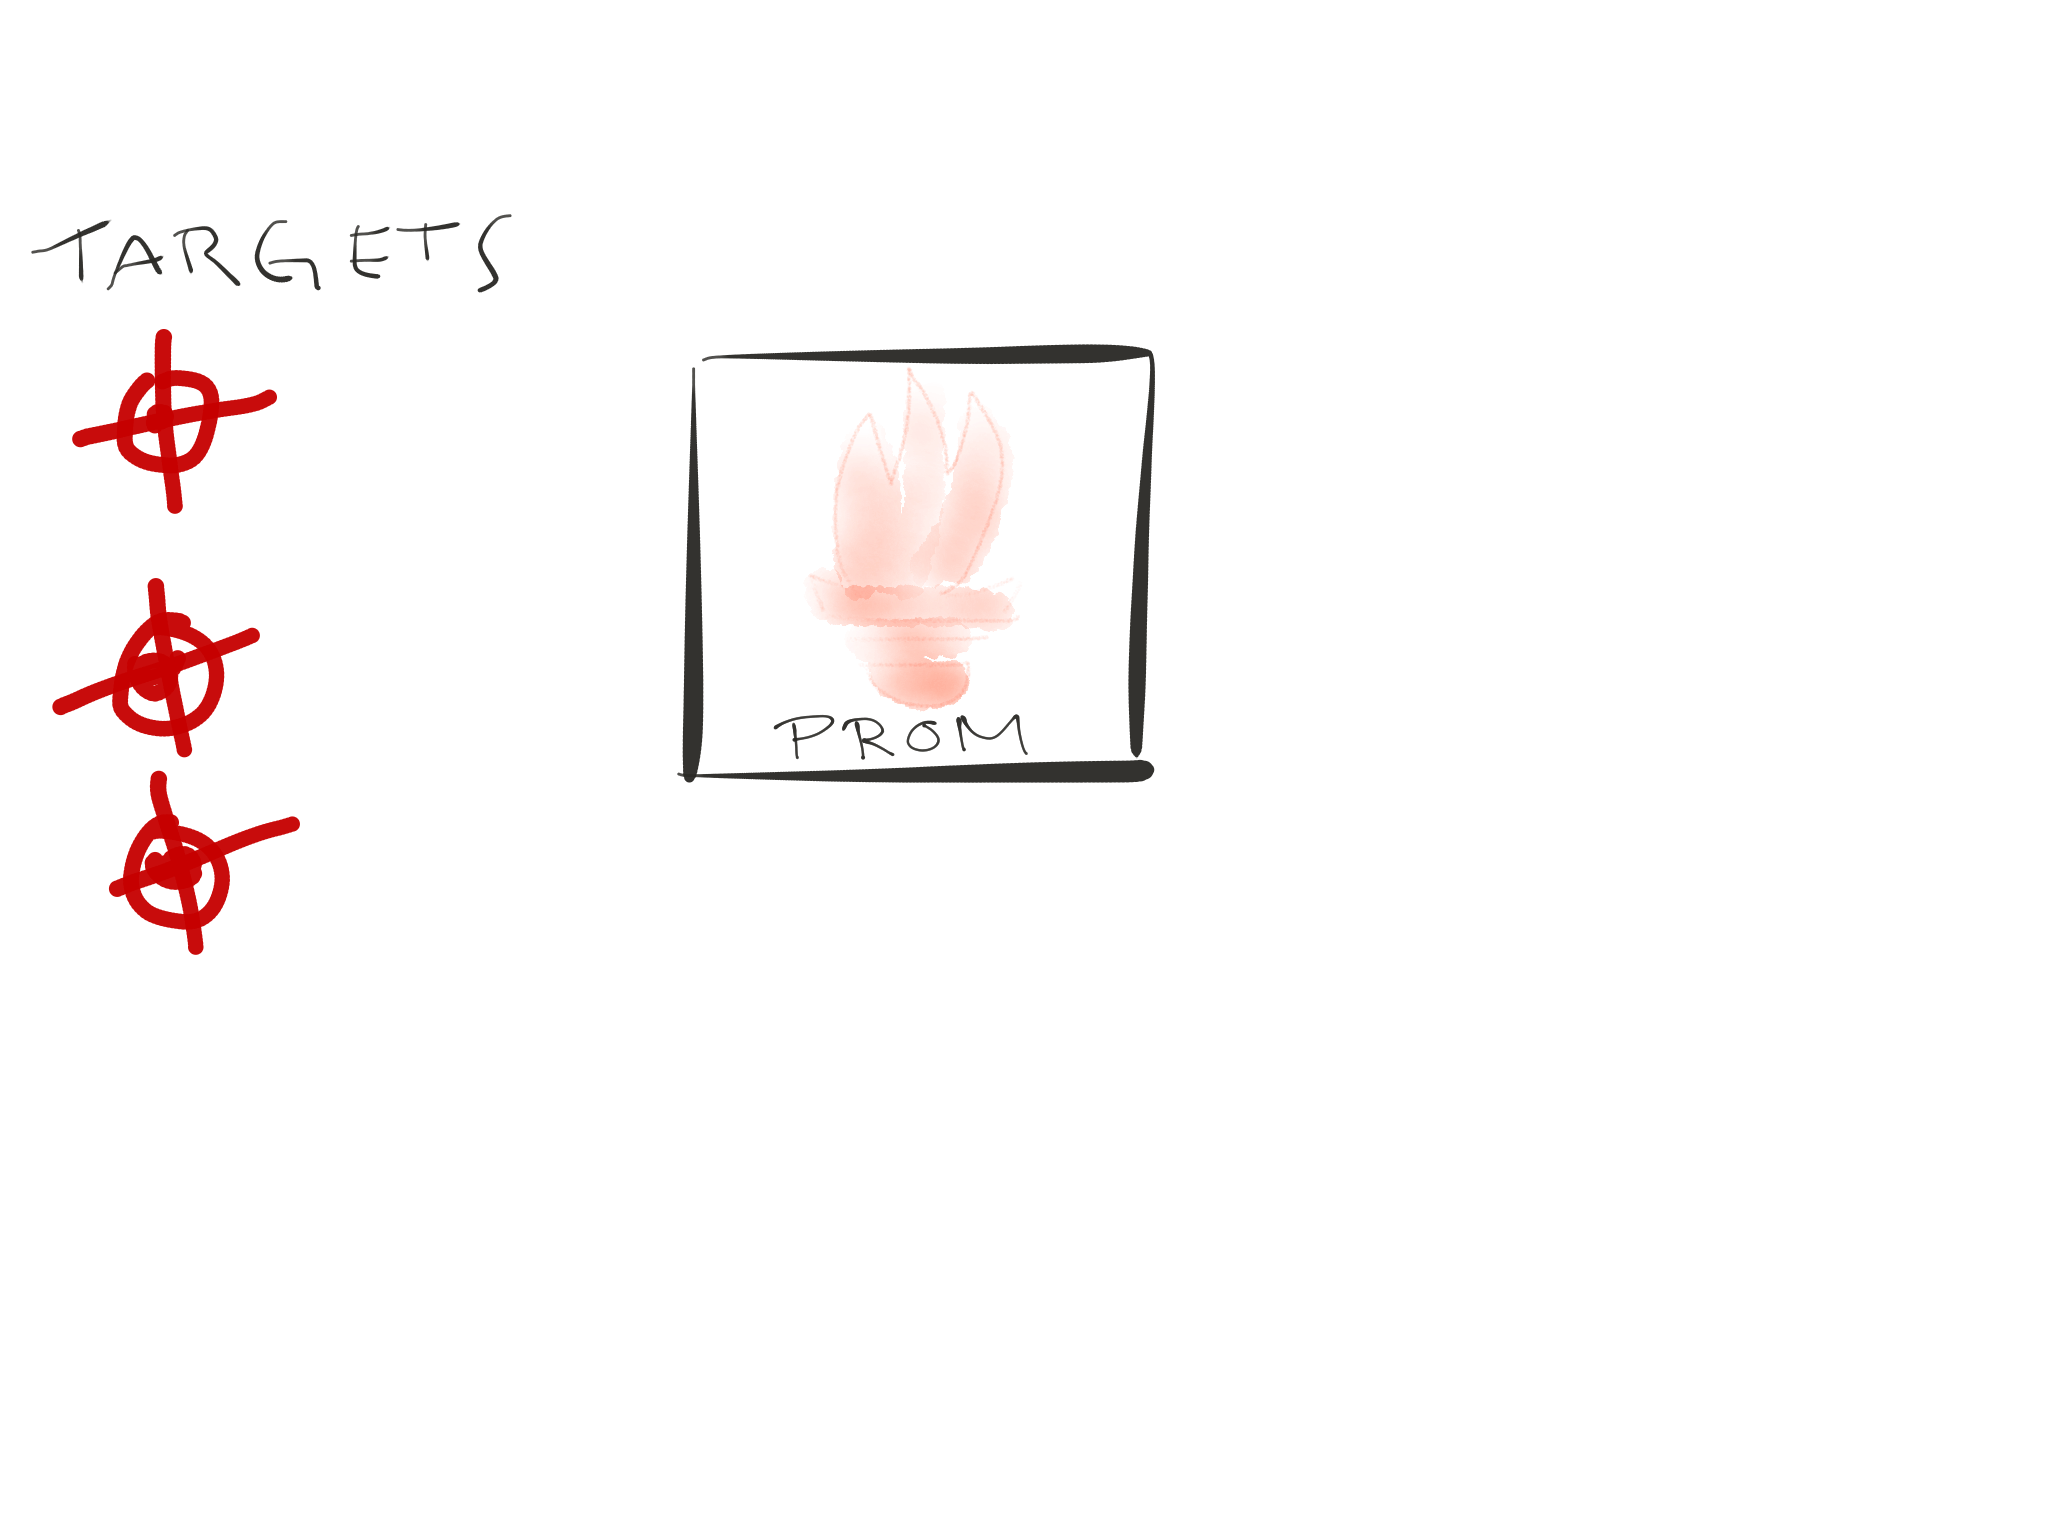 TARGETS
PROM